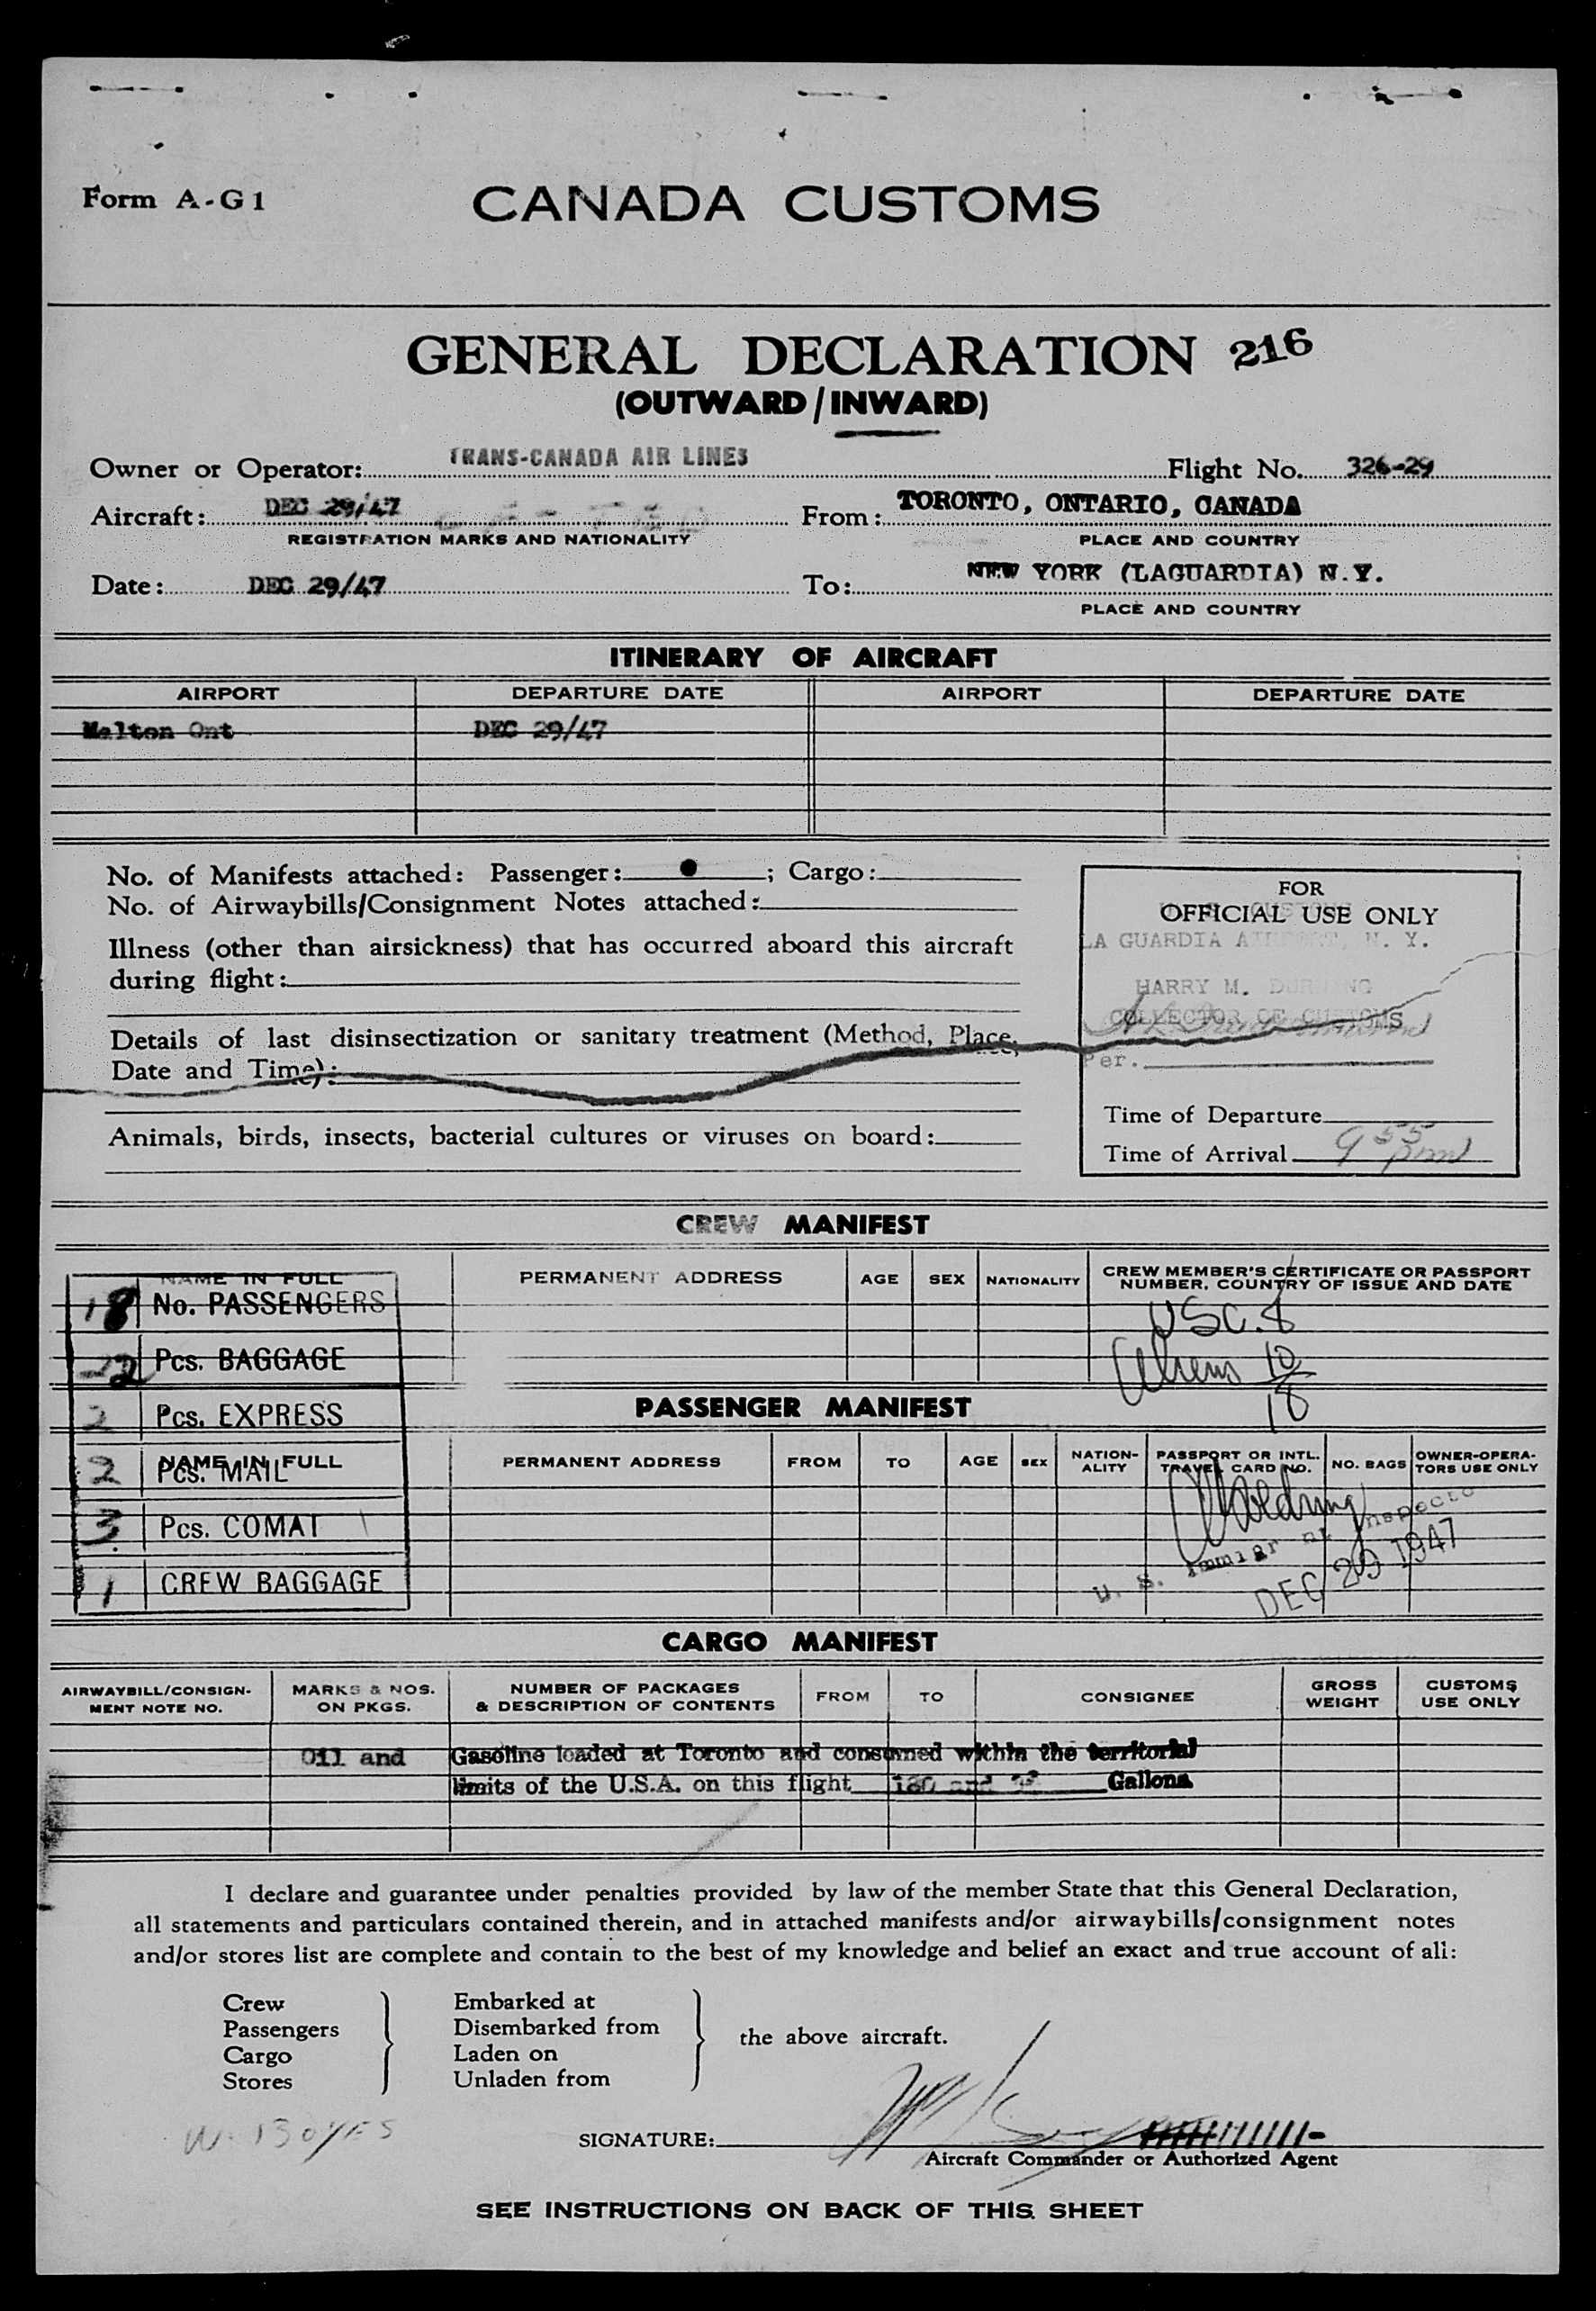 Form A-G1
CANADA CUSTOMS
GENERAL DECLARATION 216
(OUTWARD/INWARD)
Owner or Operator: TRANS-CANADA AIR LINES Flight No. 326-29
Aircraft: DEC 29/47 From: TORONTO, ONTARIO, CANADA
REGISTRATION MARKS AND NATIONALITY PLACE AND COUNTRY
Date: DEC 29/47 To: NEW YORK (LAGUARDIA) N.Y.
PLACE AND COUNTRY
ITINERARY OF AIRCRAFT
AIRPORT DEPARTURE DATE AIRPORT DEPARTURE DATE
Malton Ont DEC 29/47
No. of Manifests attached: Passenger: ; Cargo:
No. of Airwaybills/Consignment Notes attached:
Illness (other than airsickness) that has occurred aboard this aircraft
during flight:
Details of last disinsectization or sanitary treatment (Method, Place,
Date and Time):
Animals, birds, insects, bacterial cultures or viruses on board:
FOR
OFFICIAL USE ONLY
LA GUARDIA AIRPORT, N. Y.
HARRY M. DURNING
COLLECTOR OF CUSTOMS
Per.
Time of Departure
Time of Arrival 9 55 pm
CREW MANIFEST
NAME IN FULL PERMANENT ADDRESS AGE SEX NATIONALITY CREW MEMBER'S CERTIFICATE OR PASSPORT
NUMBER, COUNTRY OF ISSUE AND DATE
18 No. PASSENGERS
USC. 8
22 Pcs. BAGGAGE
Aliens 10
18
2 Pcs. EXPRESS
PASSENGER MANIFEST
NAME IN FULL PERMANENT ADDRESS FROM TO AGE SEX NATION-
ALITY PASSPORT OR INTL.
TRAVEL CARD NO. NO. BAGS OWNER-OPERA-
TORS USE ONLY
2 Pcs. MAIL
3 Pcs. COMAT
1 CREW BAGGAGE
U. S. Immigrant Inspector
DEC 29 1947
CARGO MANIFEST
AIRWAYBILL/CONSIGN-
MENT NOTE NO. MARKS & NOS.
ON PKGS. NUMBER OF PACKAGES
& DESCRIPTION OF CONTENTS FROM TO CONSIGNEE GROSS
WEIGHT CUSTOMS
USE ONLY
Oil and Gasoline loaded at Toronto and consumed within the territorial
limits of the U.S.A. on this flight 180 and Gallons
I declare and guarantee under penalties provided by law of the member State that this General Declaration,
all statements and particulars contained therein, and in attached manifests and/or airwaybills/consignment notes
and/or stores list are complete and contain to the best of my knowledge and belief an exact and true account of all:
Crew Embarked at
Passengers Disembarked from
the above aircraft.
Cargo Laden on
Stores Unladen from
W. BOYES
SIGNATURE:
Aircraft Commander or Authorized Agent
SEE INSTRUCTIONS ON BACK OF THIS SHEET